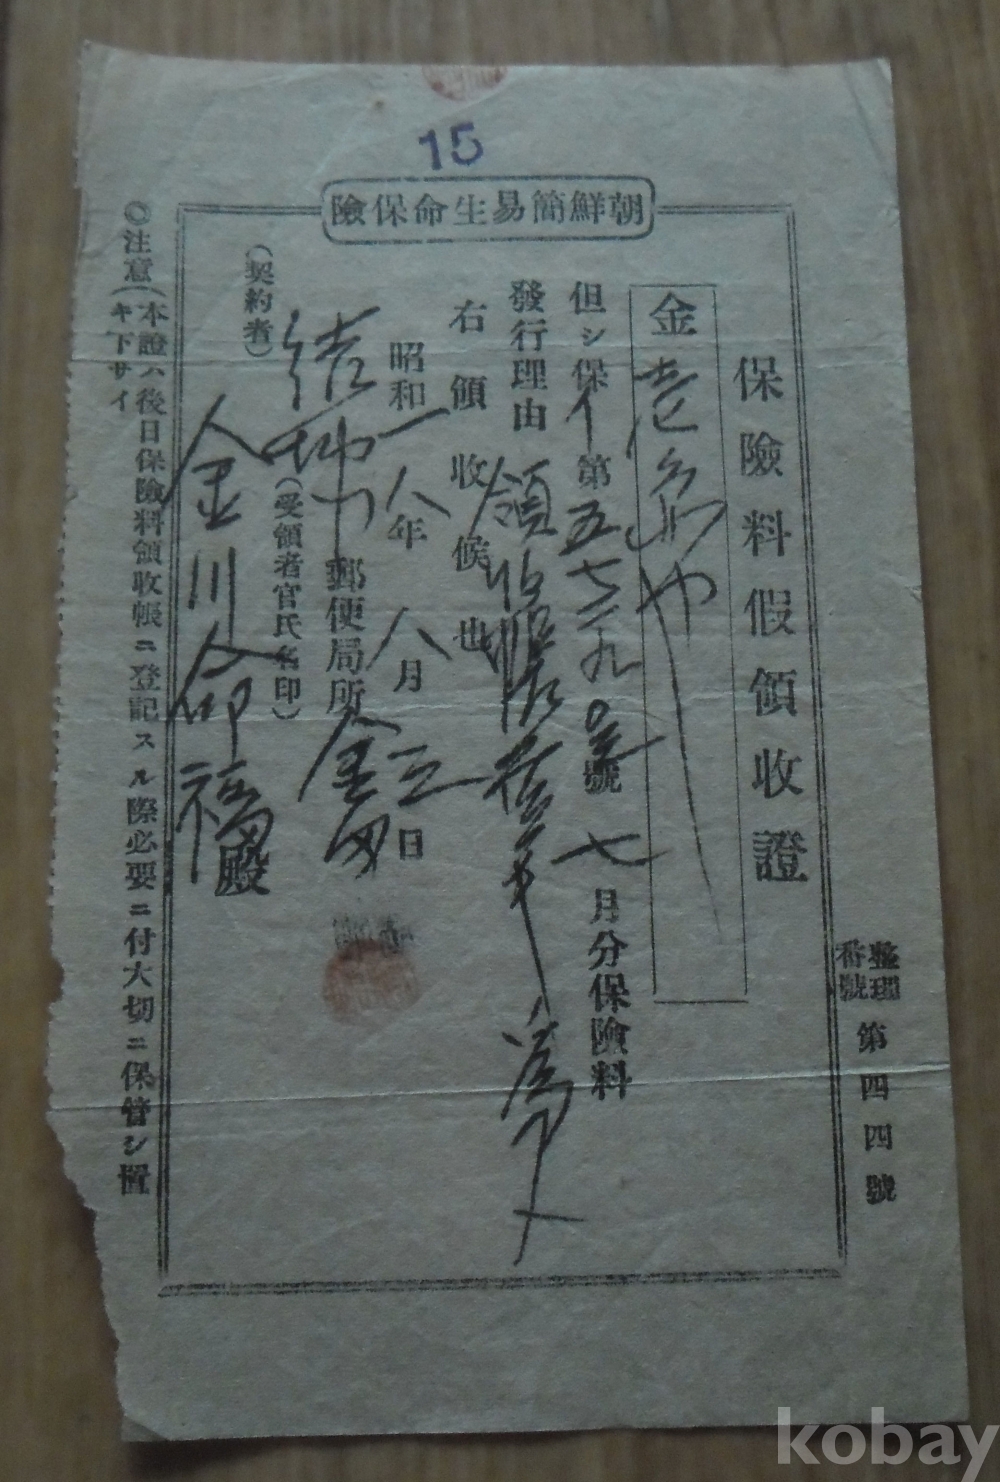 15
朝鮮簡易生命保險
整理番號 第四四號
保險料假領收證
金壱円也
但シ保イ第五七二九〇号號七月分保險料
發行理由 領收帳
右領收候也
昭和一八年八月三日
郵便局所
(受領者官氏名印)
(契約者)
金川命福殿
◎注意(本證ハ後日保險料領收帳ニ登記スル際必要ニ付大切ニ保管シ置
キ下サイ
kobay